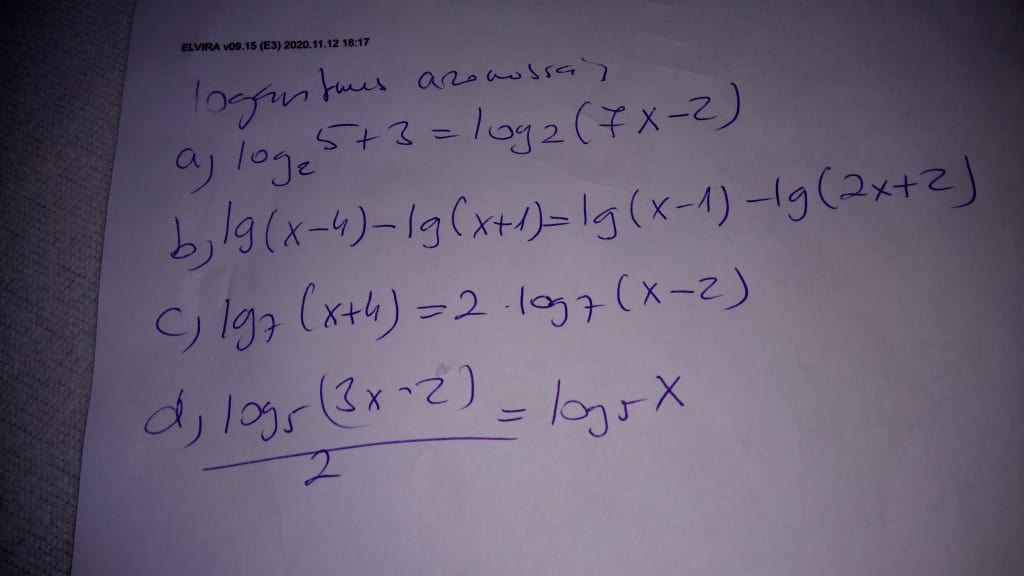 ELVIRA v09.15 (E3) 2020.11.12 18:17
logaritmus azonosságai
a) log₂5+3=log₂(7x-2)
b) lg(x-4)-lg(x+1)=lg(x-1)-lg(2x+2)
c) lg₇(x+4)=2·log₇(x-2)
d) log₅(3x-2)/2=log₅x